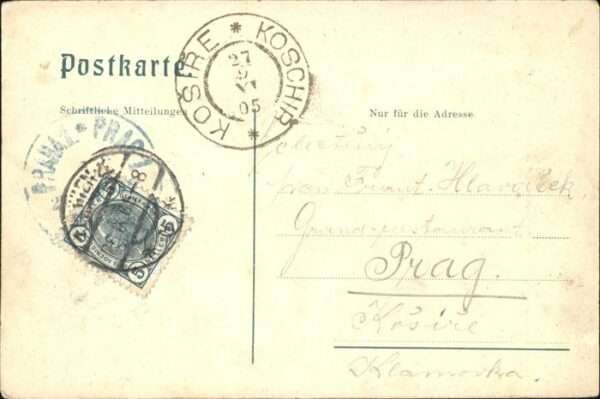 Postkarte
Schriftliche Mitteilungen
Nur für die Adresse
KOSIRE * KOSCHIR *
27
9
VI
05
PRAHA * PRAG
WIEN
8
5
5
pan Frant. Hlaváček
Grand-restaurant
Prag.
Košíře
Klamovka.